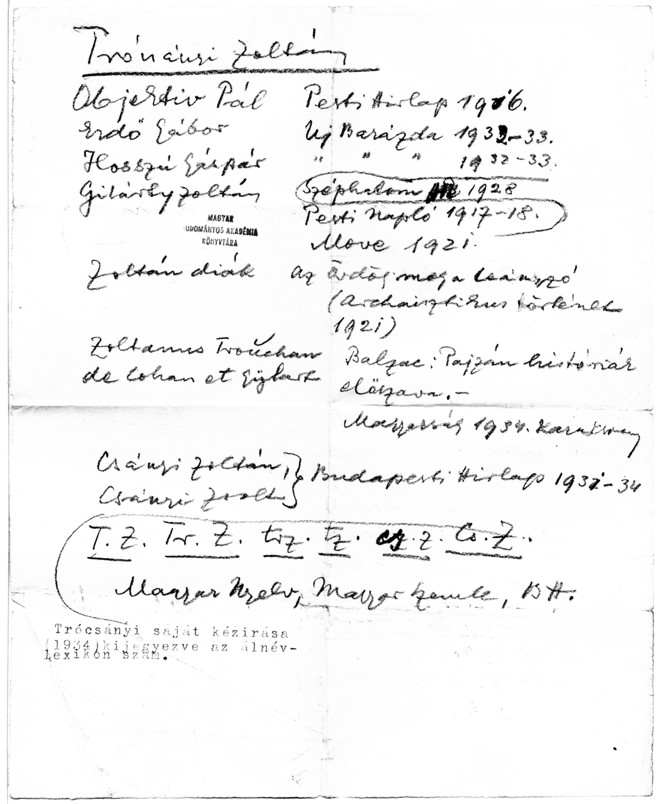 Trócsányi Zoltán
Objektiv Pál Pesti Hirlap 1916.
Erdő Gábor Uj Barázda 1932-33.
Hosszú Gáspár " " " 1932-33.
Gilárty Zoltán Széphalom 1928
Pesti Napló 1917-18.
MAGYAR
TUDOMÁNYOS AKADÉMIA
KÖNYVTÁRA
Move 1921.
Zoltán diák Az ördög maga
(Archaisztikus történet
1921)
Zoltanus Balzac: Pajzán históriák
de Cohan et előszava.-
Magyarság 1934.
Csányi Zoltán, } Budapesti Hirlap 1931-34
Csányi Zsolt
T. Z. Tr. Z. trz. tz. cs. z. Cs. Z.
Magyar Nyelv, Magyar Szemle, BH.
Trócsányi saját kézirása
(1934)kijegyezve az álnév-
Lexikon szám.